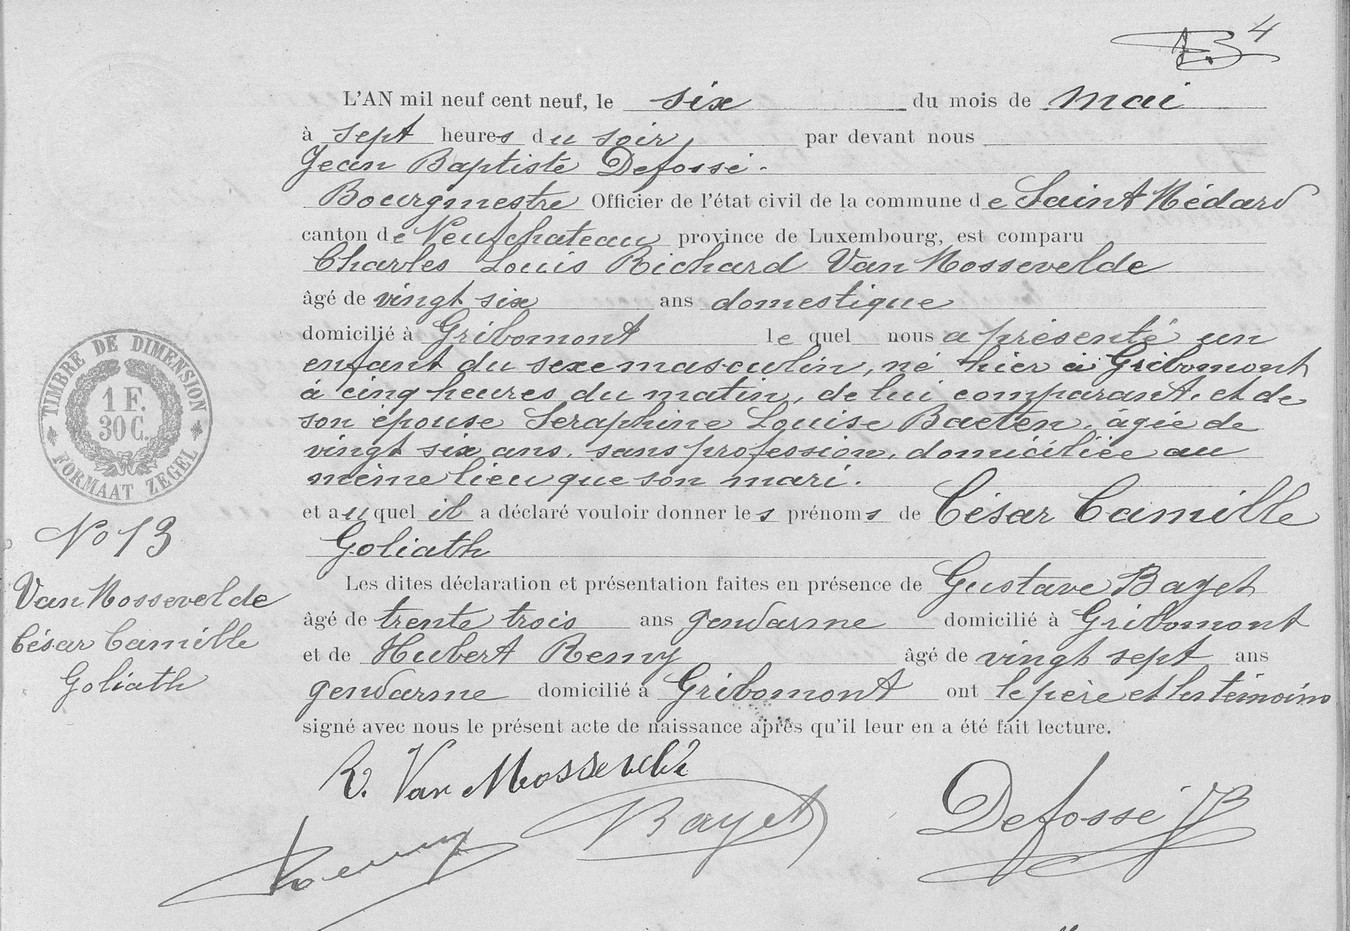 4
L'AN mil neuf cent neuf, le six du mois de mai
à sept heures du soir par devant nous
Jean Baptiste Defossé.
Bourgmestre Officier de l'état civil de la commune de Saint Médard
canton de Neufchateau province de Luxembourg, est comparu
Charles Louis Richard Van Mossevelde
âgé de vingt six ans domestique
domicilié à Gribomont le quel nous a présenté un
enfant du sexe masculin, né hier à Gribomont
à cinq heures du matin, de lui comparant, et de
son épouse Seraphine Louise Baeten, âgée de
vingt six ans, sans profession, domiciliée au
même lieu que son mari.
et au quel il a déclaré vouloir donner les prénoms de César Camille
Goliath
Les dites déclaration et présentation faites en présence de Gustave Bayet
âgé de trente trois ans gendarme domicilié à Gribomont
et de Hubert Remy âgé de vingt sept ans
gendarme domicilié à Gribomont ont le père et les témoins
signé avec nous le présent acte de naissance après qu'il leur en a été fait lecture.
TIMBRE DE DIMENSION
1 F.
30 C.
FORMAAT ZEGEL
No 13
Van Mossevelde
César Camille
Goliath
R. Van Mossevelde
Remy Bayet Defossé JB